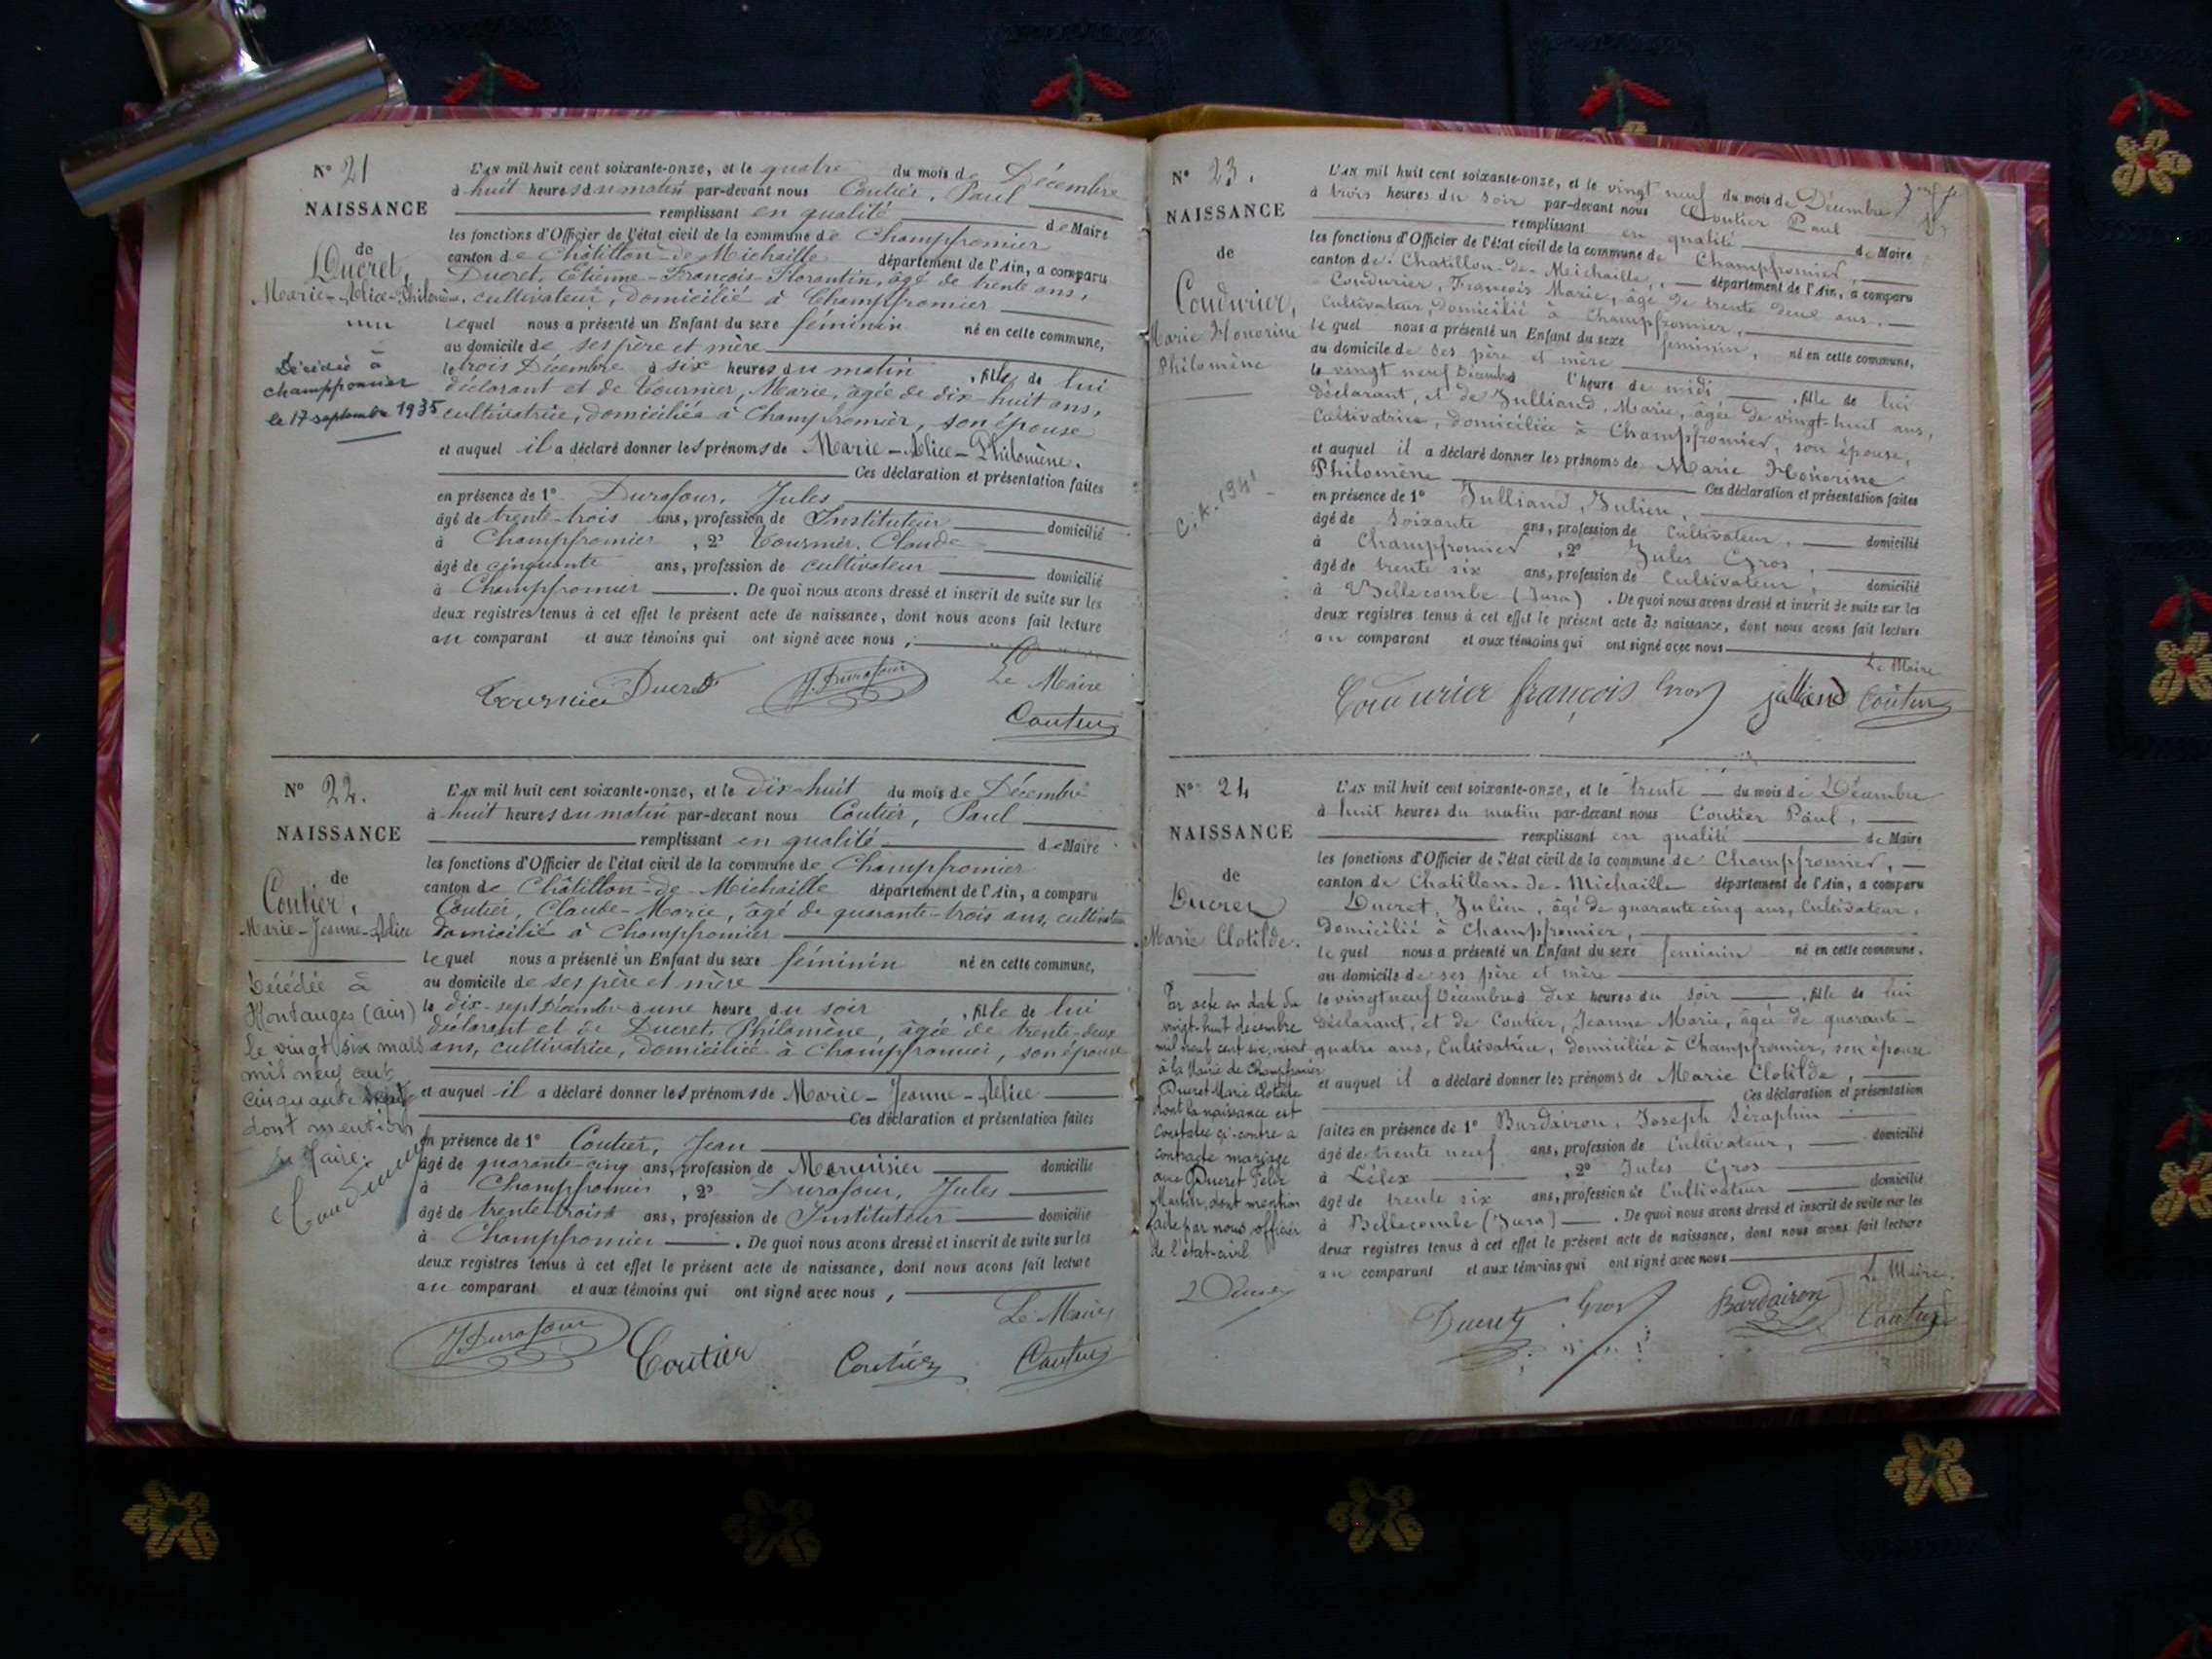 N° 21
NAISSANCE
de
Ducret,
Marie-Alice-Philomène,
Décédée à
champfromier
le 17 septembre 1935
L'AN mil huit cent soixante-onze, et le quatre du mois de Décembre
à huit heures du matin par-devant nous Coutier, Paul
remplissant en qualité de Maire
les fonctions d'Officier de l'état civil de la commune de Champfromier
canton de Châtillon-de-Michaille département de l'Ain, a comparu
Ducret, Etienne-François-Florantin, âgé de trente ans,
cultivateur, domicilié à Champfromier
lequel nous a présenté un Enfant du sexe féminin né en cette commune,
au domicile de ses père et mère
le trois Décembre à six heures du matin, fille de lui
déclarant et de Tournier, Marie, âgée de dix-huit ans,
cultivatrice, domiciliée à Champfromier, son épouse
et auquel il a déclaré donner les prénoms de Marie-Alice-Philomène.
Ces déclaration et présentation faites
en présence de 1° Durafour, Jules
âgé de trente-trois ans, profession de Instituteur domicilié
à Champfromier, 2° Tournier, Claude
âgé de cinquante ans, profession de cultivateur domicilié
à Champfromier. De quoi nous avons dressé et inscrit de suite sur les
deux registres tenus à cet effet le présent acte de naissance, dont nous avons fait lecture
au comparant et aux témoins qui ont signé avec nous,
Tournier Ducret J. Durafour Le Maire
Coutier
N° 22.
NAISSANCE
de
Coutier,
Marie-Jeanne-Alice
Décédée à
Montanges (ain)
le vingt six mars
mil neuf cent
cinquante
dont mention
Le Maire:
L'AN mil huit cent soixante-onze, et le dix-huit du mois de Décembre
à huit heures du matin par-devant nous Coutier, Paul
remplissant en qualité de Maire
les fonctions d'Officier de l'état civil de la commune de Champfromier
canton de Châtillon-de-Michaille département de l'Ain, a comparu
Coutier, Claude-Marie, âgé de quarante-trois ans, cultivateur
domicilié à Champfromier
lequel nous a présenté un Enfant du sexe féminin né en cette commune,
au domicile de ses père et mère
le dix-sept Décembre à une heure du soir, fille de lui
déclarant et de Ducret, Philomène, âgée de trente-deux
ans, cultivatrice, domiciliée à Champfromier, son épouse
et auquel il a déclaré donner les prénoms de Marie-Jeanne-Alice
Ces déclaration et présentation faites
en présence de 1° Coutier, Jean
âgé de quarante-cinq ans, profession de Menuisier domicilié
à Champfromier, 2° Durafour, Jules
âgé de trente-trois ans, profession de Instituteur domicilié
à Champfromier. De quoi nous avons dressé et inscrit de suite sur les
deux registres tenus à cet effet le présent acte de naissance, dont nous avons fait lecture
au comparant et aux témoins qui ont signé avec nous,
Le Maire
J. Durafour Coutier Coutier Coutier
N° 23.
NAISSANCE
de
Coudurier,
Marie Honorine
Philomène
L'AN mil huit cent soixante-onze, et le vingt neuf du mois de Décembre
à trois heures du soir par-devant nous Coutier Paul
remplissant en qualité de Maire
les fonctions d'Officier de l'état civil de la commune de Champfromier,
canton de Chatillon-de-Michaille, département de l'Ain, a comparu
Coudurier, François Marie, âgé de trente deux ans,
Cultivateur, domicilié à Champfromier,
lequel nous a présenté un Enfant du sexe féminin, né en cette commune,
au domicile de ses père et mère
le vingt neuf Décembre à l'heure de midi, fille de lui
déclarant, et de Julliand, Marie, âgée de vingt-huit ans,
Cultivatrice, domiciliée à Champfromier, son épouse,
et auquel il a déclaré donner les prénoms de Marie Honorine
Philomène Ces déclaration et présentation faites
en présence de 1° Julliand, Julien,
âgé de soixante ans, profession de Cultivateur, domicilié
à Champfromier, 2° Jules Gros,
âgé de trente six ans, profession de Cultivateur, domicilié
à Bellecombe (Jura). De quoi nous avons dressé et inscrit de suite sur les
deux registres tenus à cet effet le présent acte de naissance, dont nous avons fait lecture
au comparant et aux témoins qui ont signé avec nous
Le Maire
Coudurier françois Gros julliand Coutier
N° 24
NAISSANCE
de
Ducret
Marie Clotilde.
Par acte en date du
vingt-huit décembre
mil neuf cent six, inscrit
à la Mairie de Champfromier
Ducret Marie Clotilde
dont la naissance est
constatée ci-contre a
contracté mariage
avec Ducret Félix
dont mention
faite par nous officier
de l'état-civil
Ducret
L'AN mil huit cent soixante-onze, et le trente du mois de Décembre
à huit heures du matin par-devant nous Coutier Paul,
remplissant en qualité de Maire
les fonctions d'Officier de l'état civil de la commune de Champfromier,
canton de Chatillon-de-Michaille département de l'Ain, a comparu
Ducret, Julien, âgé de quarante cinq ans, Cultivateur,
domicilié à Champfromier,
lequel nous a présenté un Enfant du sexe féminin né en cette commune,
au domicile de ses père et mère
le vingt neuf Décembre à dix heures du soir, fille de lui
déclarant, et de Coutier, Jeanne Marie, âgée de quarante-
quatre ans, Cultivatrice, domiciliée à Champfromier, son épouse
et auquel il a déclaré donner les prénoms de Marie Clotilde,
Ces déclaration et présentation
faites en présence de 1° Burdairon, Joseph Séraphin
âgé de trente neuf ans, profession de Cultivateur, domicilié
à Lélex, 2° Jules Gros
âgé de trente six ans, profession de Cultivateur domicilié
à Bellecombe (Jura). De quoi nous avons dressé et inscrit de suite sur les
deux registres tenus à cet effet le présent acte de naissance, dont nous avons fait lecture
au comparant et aux témoins qui ont signé avec nous
Le Maire.
Ducret Gros Burdairon Coutier